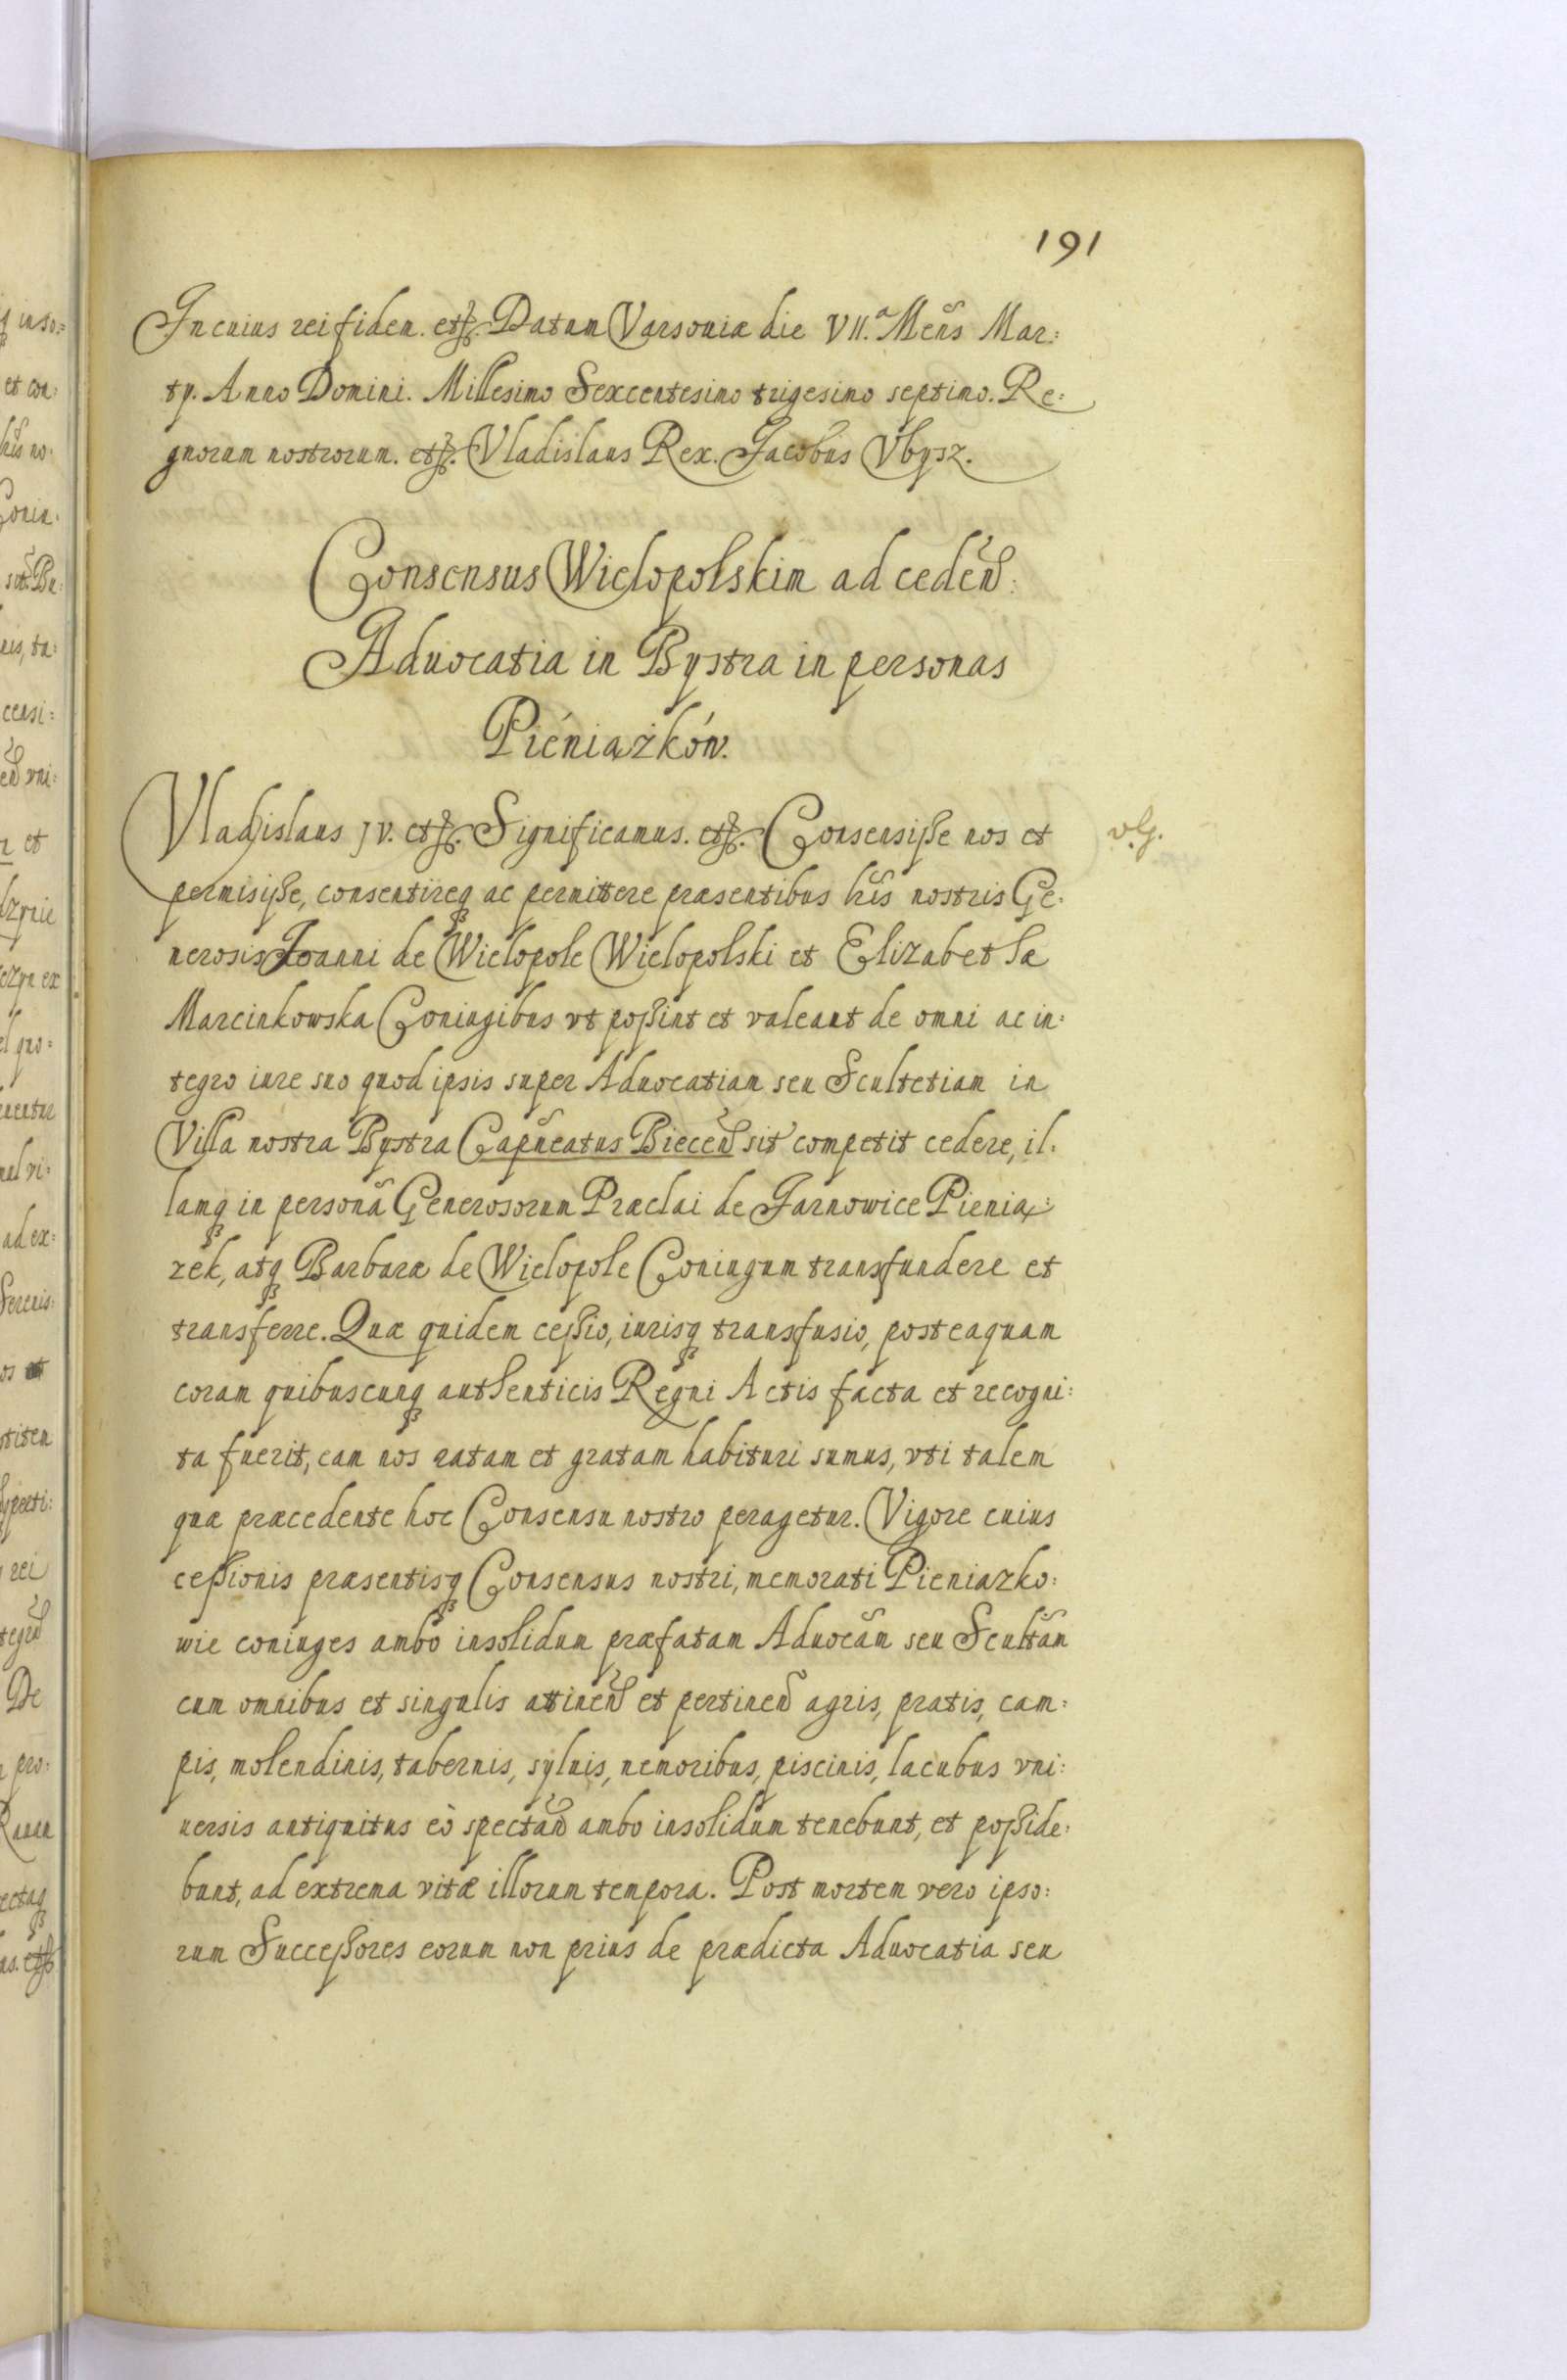 191
In cuius rei fidem. etc. Datum Varsouiæ die VII.ª Mens̃ Mar:
ty. Anno Domini. Millesimo Sexcentesimo trigesimo septimo. Re:
gnorum nostrorum. etc. Vladislaus Rex. Jacobus Vbysz.
Consensus Wielopolskim ad ceden̄:
Aduocatia in Bystra in personas
Piéniążków.
Vladislaus JV. etc. Significamus. etc. Consensisse nos et
v. G.
permisisse, consentireq3 ac permittere præsentibus lr̃is nostris Ge:
nerosis Joanni de Wielopole Wielopolski et Elizabethæ
Marcinkowska Coniugibus vt possint et valeant de omni ac in:
tegro iure suo quod ipsis super Aduocatiam seu Scultetiam in
Villa nostra Bystra Capñeatus Biecen̄ sit̃ competit cedere, il:
lamq3 in personã Generosorum Præclai de Jarnowice Pienią:
zek, atq3 Barbaræ de Wielopole Coniugum transfundere et
transferre. Quæ quidem cessio, iurisq3 transfusio, posteaquam
coram quibuscunq3 authenticis Regni Actis facta et recogni:
ta fuerit, eam nos ratam et gratam habituri sumus, vti talem
quæ præcedente hoc Consensu nostro peragetur. Vigore cuius
cessionis præsentisq3 Consensus nostri, memorati Pieniazko:
wie coniuges ambo insolidum præfatam Aduocãm seu Scultãm
cum omnibus et singulis attinen̄ et pertinen̄ agris, pratis, cam:
pis, molendinis, tabernis, syluis, nemoribus, piscinis, lacubus vni:
uersis antiquitus eò spectan̄ ambo insolidum tenebunt, et posside:
bunt, ad extrema vitæ illorum tempora. Post mortem vero ipso:
rum Successores eorum non prius de prædicta Aduocatia seu